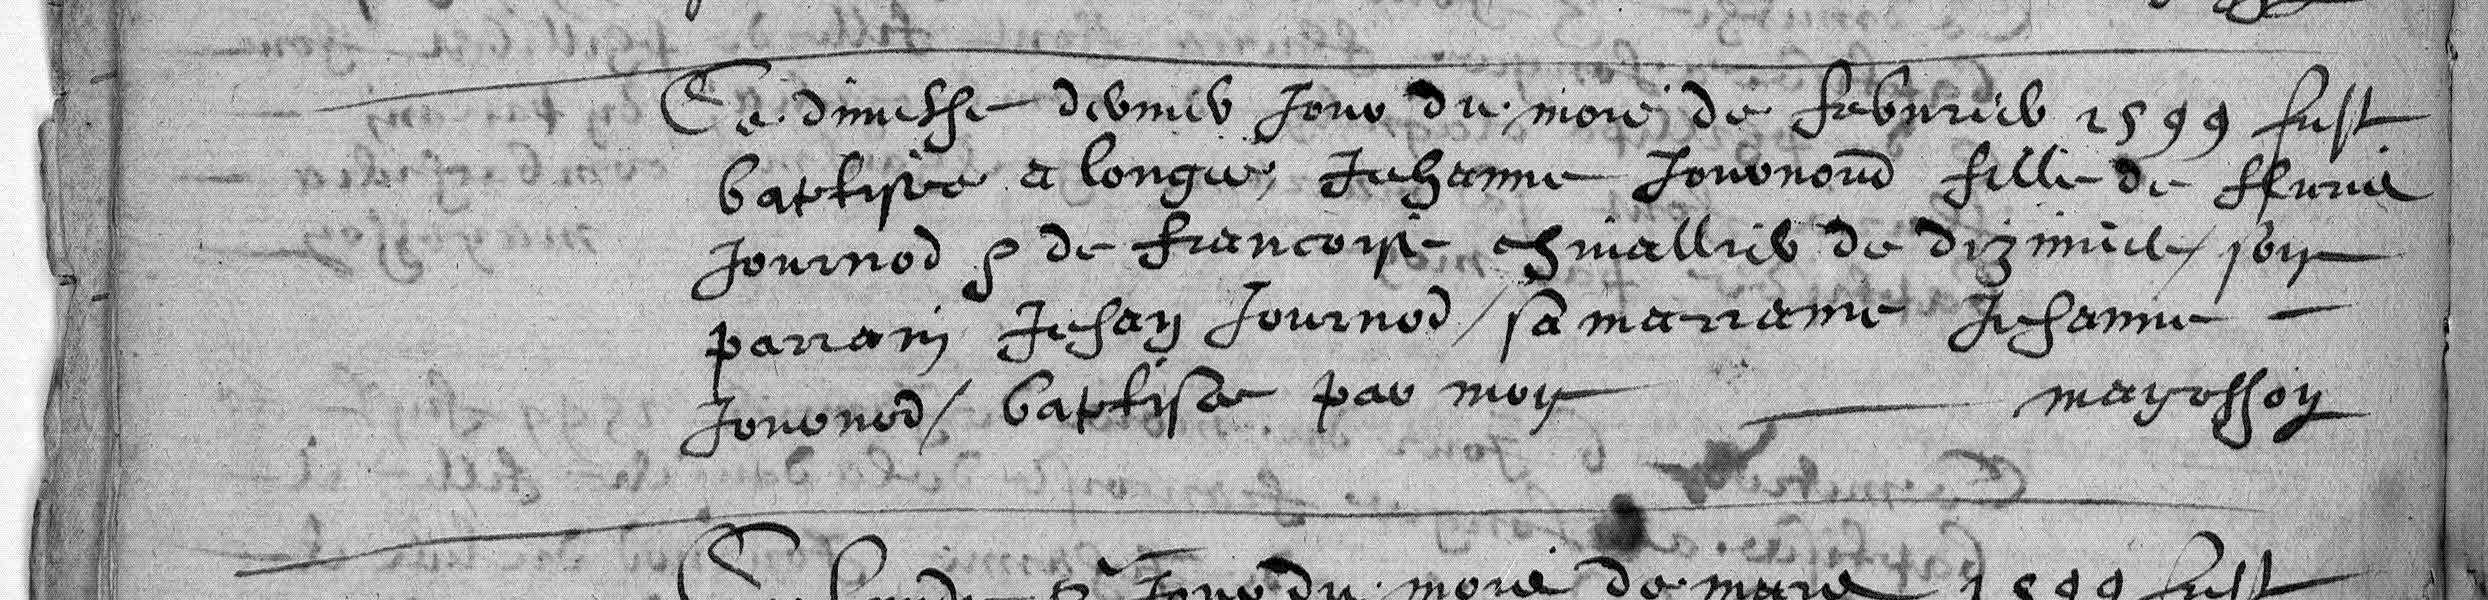 Ce dimesche dernier Jour du mois de febvrier 1599 fust
baptisee a longes, Jehanne Journoud fille de fleurie
Journod & de francoise chivallier de dizimieu / son
parrain Jehan Journod / sa marrame Jehanne –
Journod / baptisee par moy
mayosson
Ce lundy 8 Jour du mois de mars 1599 fust